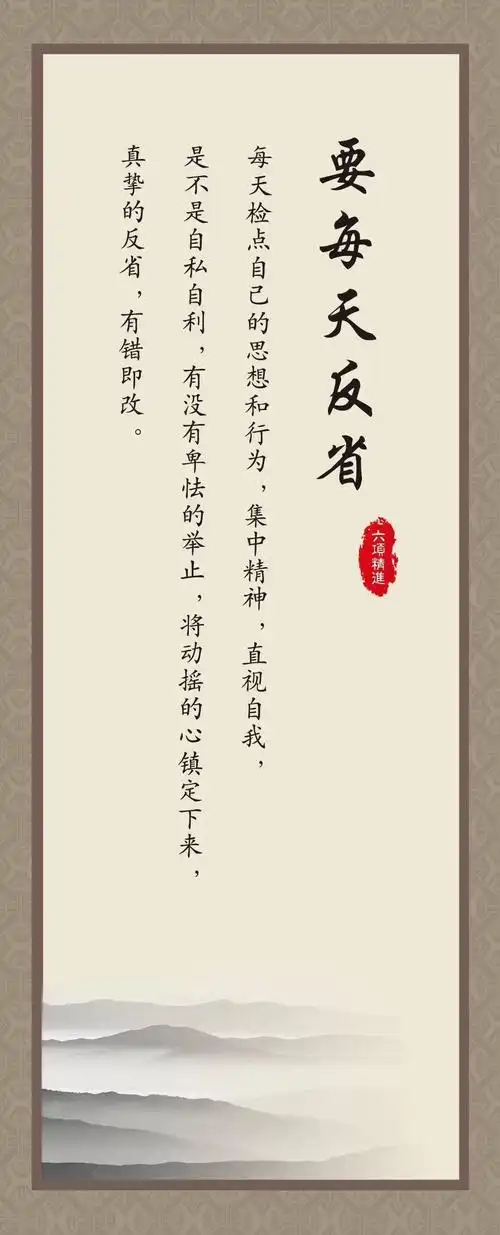 要每天反省
六項精進
每天检点自己的思想和行为，集中精神，直视自我，
是不是自私自利，有没有卑怯的举止，将动摇的心镇定下来，
真挚的反省，有错即改。